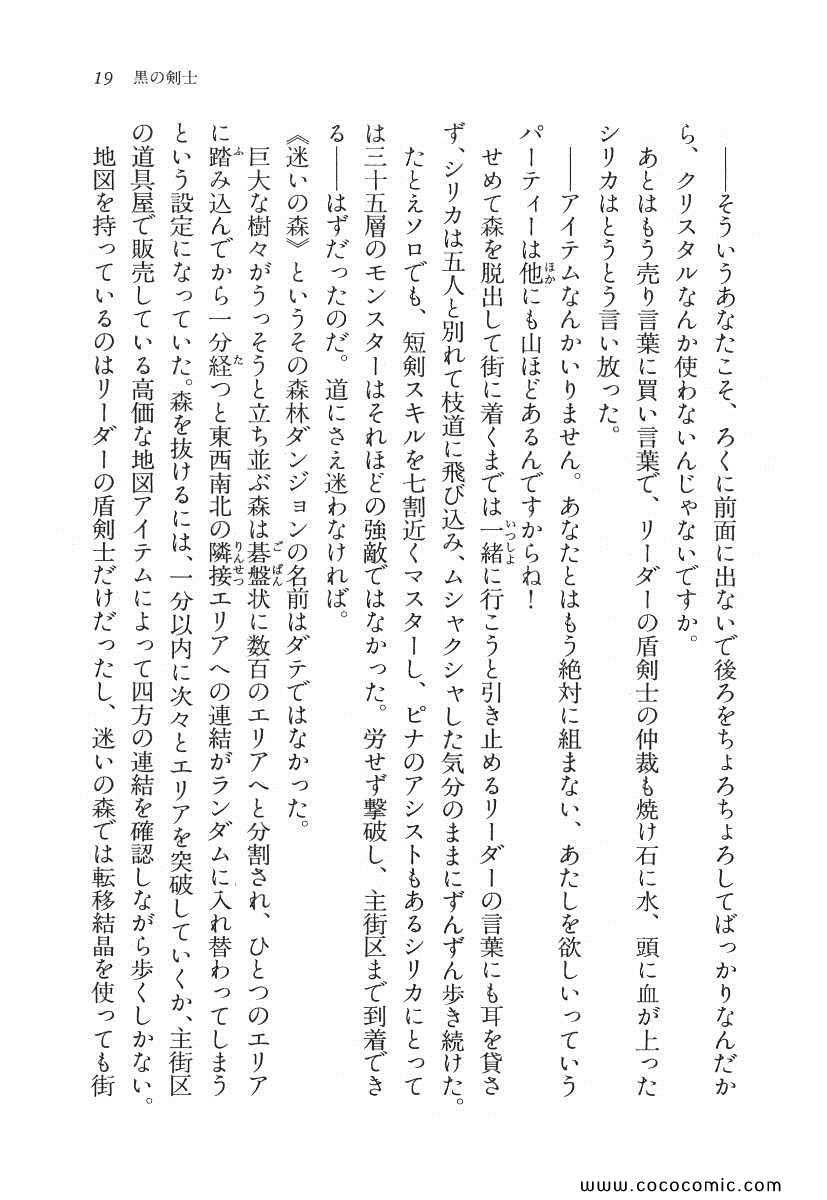 19 黒の剣士
――そういうあなたこそ、ろくに前面に出ないで後ろをちょろちょろしてばっかりなんだか
ら、クリスタルなんか使わないんじゃないですか。
あとはもう売り言葉に買い言葉で、リーダーの盾剣士の仲裁も焼け石に水、頭に血が上った
シリカはとうとう言い放った。
――アイテムなんかいりません。あなたとはもう絶対に組まない、あたしを欲しいっていう
パーティーは他にも山ほどあるんですからね！
せめて森を脱出して街に着くまでは一緒に行こうと引き止めるリーダーの言葉にも耳を貸さ
ず、シリカは五人と別れて枝道に飛び込み、ムシャクシャした気分のままにずんずん歩き続けた。
たとえソロでも、短剣スキルを七割近くマスターし、ピナのアシストもあるシリカにとって
は三十五層のモンスターはそれほどの強敵ではなかった。労せず撃破し、主街区まで到着でき
る――はずだったのだ。道にさえ迷わなければ。
《迷いの森》というその森林ダンジョンの名前はダテではなかった。
巨大な樹々がうっそうと立ち並ぶ森は碁盤状に数百のエリアへと分割され、ひとつのエリア
に踏み込んでから一分経つと東西南北の隣接エリアへの連結がランダムに入れ替わってしまう
という設定になっていた。森を抜けるには、一分以内に次々とエリアを突破していくか、主街区
の道具屋で販売している高価な地図アイテムによって四方の連結を確認しながら歩くしかない。
地図を持っているのはリーダーの盾剣士だけだったし、迷いの森では転移結晶を使っても街
www.cococomic.com